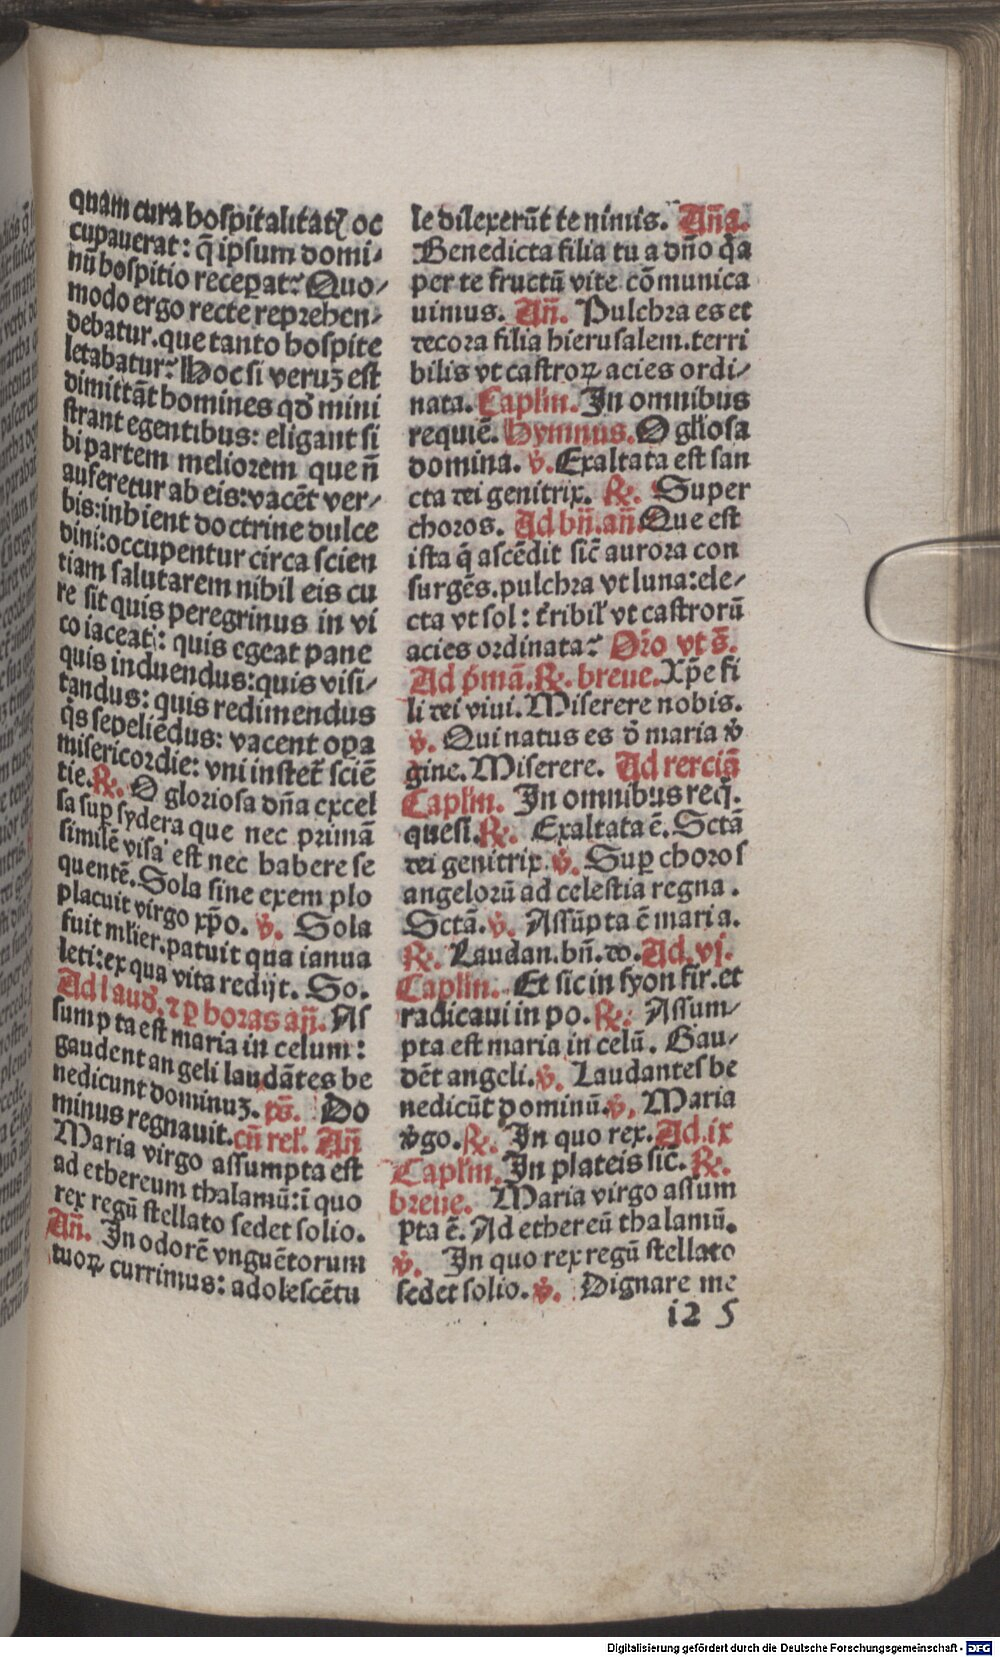 quam cura hospitalitatꝭ oc
cupauerat: q̄ ipsum domi-
nū hospitio receꝑat? Quo-
modo ergo recte reprehen-
debatur. que tanto hospite
letabatur? Hoc si veruꝫ est
dimittāt homines qd̄ mini
strant egentibus: eligant si
bi partem meliorem que n̄
auferetur ab eis: vacēt ver-
bis: inhient doctrine dulce
dini: occupentur circa scien
tiam salutarem nihil eis cu
re sit quis peregrinus in vi
co iaceat: quis egeat pane
quis induendus: quis visi-
tandus: quis redimendus
q̄s sepeliēdus: vacent opa
misericordie: vni instet sciē
tie. ℟. O gloriosa dn̄a excel
sa suꝑ sydera que nec primā
similē visa est nec habere se
quentē. Sola sine exem plo
placuit virgo xp̄o. ℣. Sola
fuit mlier. patuit qua ianua
leti: ex qua vita redijt. So.
Ad laud̄. ⁊ ꝑ horas an̄. As
sumpta est maria in celum:
gaudent angeli laudātes be
nedicunt dominuꝫ. ps̄. Do
minus regnauit. cū rel'. An̄
Maria virgo assumpta est
ad ethereum thalamū: ī quo
rex regū stellato sedet solio.
An̄. In odorē vnguētorum
tuoꝝ currimus: adolescētu
le dilexerūt te nimis. An̄a.
Benedicta filia tu a dn̄o q̄a
per te fructū vite cōmunica
uimus. An̄. Pulchra es et
decora filia hierusalem. terri
bilis vt castroꝝ acies ordi-
nata. Caplm̄. In omnibus
requiē. Hymnus. O gl̄iosa
domina. ℣. Exaltata est san
cta dei genitrix. ℟. Super
choros. Ad bn̄. an̄. Que est
ista q̄ ascēdit sic̄ aurora con
surgēs. pulchra vt luna: ele-
cta vt sol: t̄ribil' vt castrorū
acies ordinata? Or̄o vt s̄.
Ad p̄mā. ℟. breue. Xp̄e fi
li dei viui. Miserere nobis.
℣. Qui natus es d̄ maria v̓
gine. Miserere. Ad terciā
Caplm̄. In omnibus req̄.
quesi. ℟. Exaltata ē. Sctā
dei genitrix. ℣. Suꝑ choros
angelorū ad celestia regna.
Sctā. ℣. Assūpta ē maria.
℟. Laudan. bn̄. do. Ad. vj.
Caplm̄. Et sic in syon fir. et
radicaui in po. ℟. Assum-
pta est maria in celū. Gau-
dēt angeli. ℣. Laudantes be
nedicūt dominū. ℣. Maria
v̓go. ℟. In quo rex. Ad. ix
Caplm̄. In plateis sic̄. ℟.
breue. Maria virgo assum
pta ē. Ad ethereū thalamū.
℣. In quo rex regū stellato
sedet solio. ℣. Dignare me
i2 5
Digitalisierung gefördert durch die Deutsche Forschungsgemeinschaft - DFG